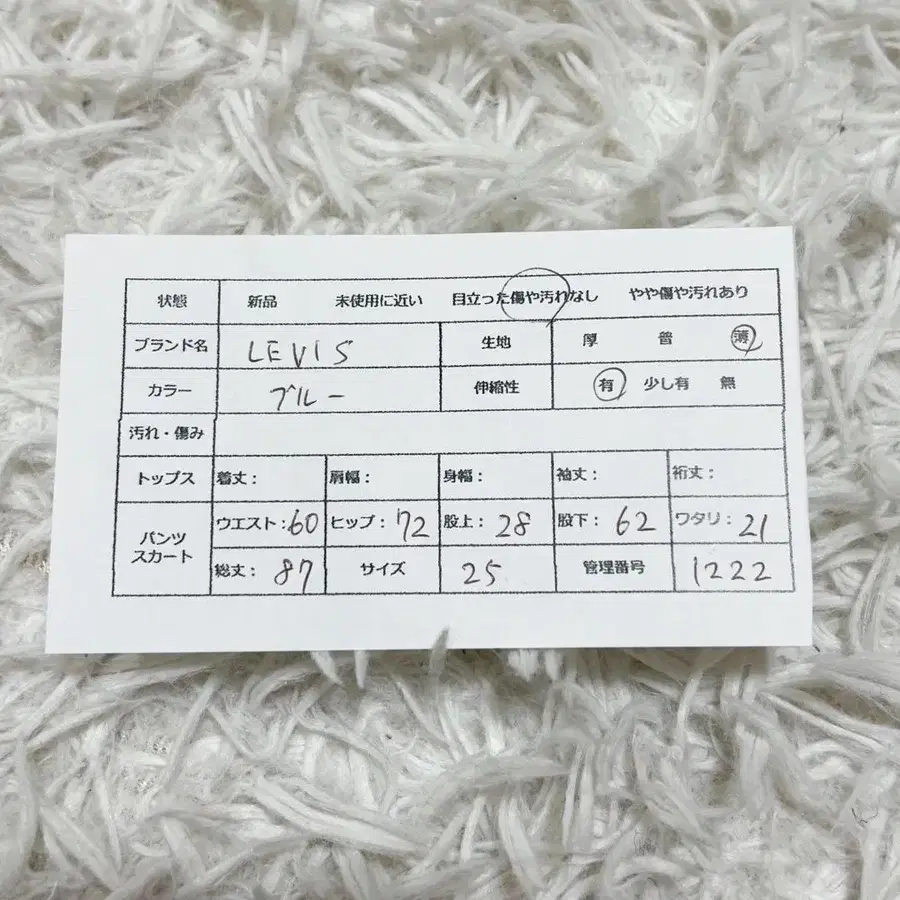 状態 新品 未使用に近い 目立った傷や汚れなし やや傷や汚れあり
ブランド名 LEVIS 生地 厚 普 薄
カラー ブルー 伸縮性 有 少し有 無
汚れ・傷み
トップス 着丈: 肩幅: 身幅: 袖丈: 裄丈:
パンツ スカート ウエスト:60 ヒップ:72 股上:28 股下:62 ワタリ:21
総丈:87 サイズ 25 管理番号 1222